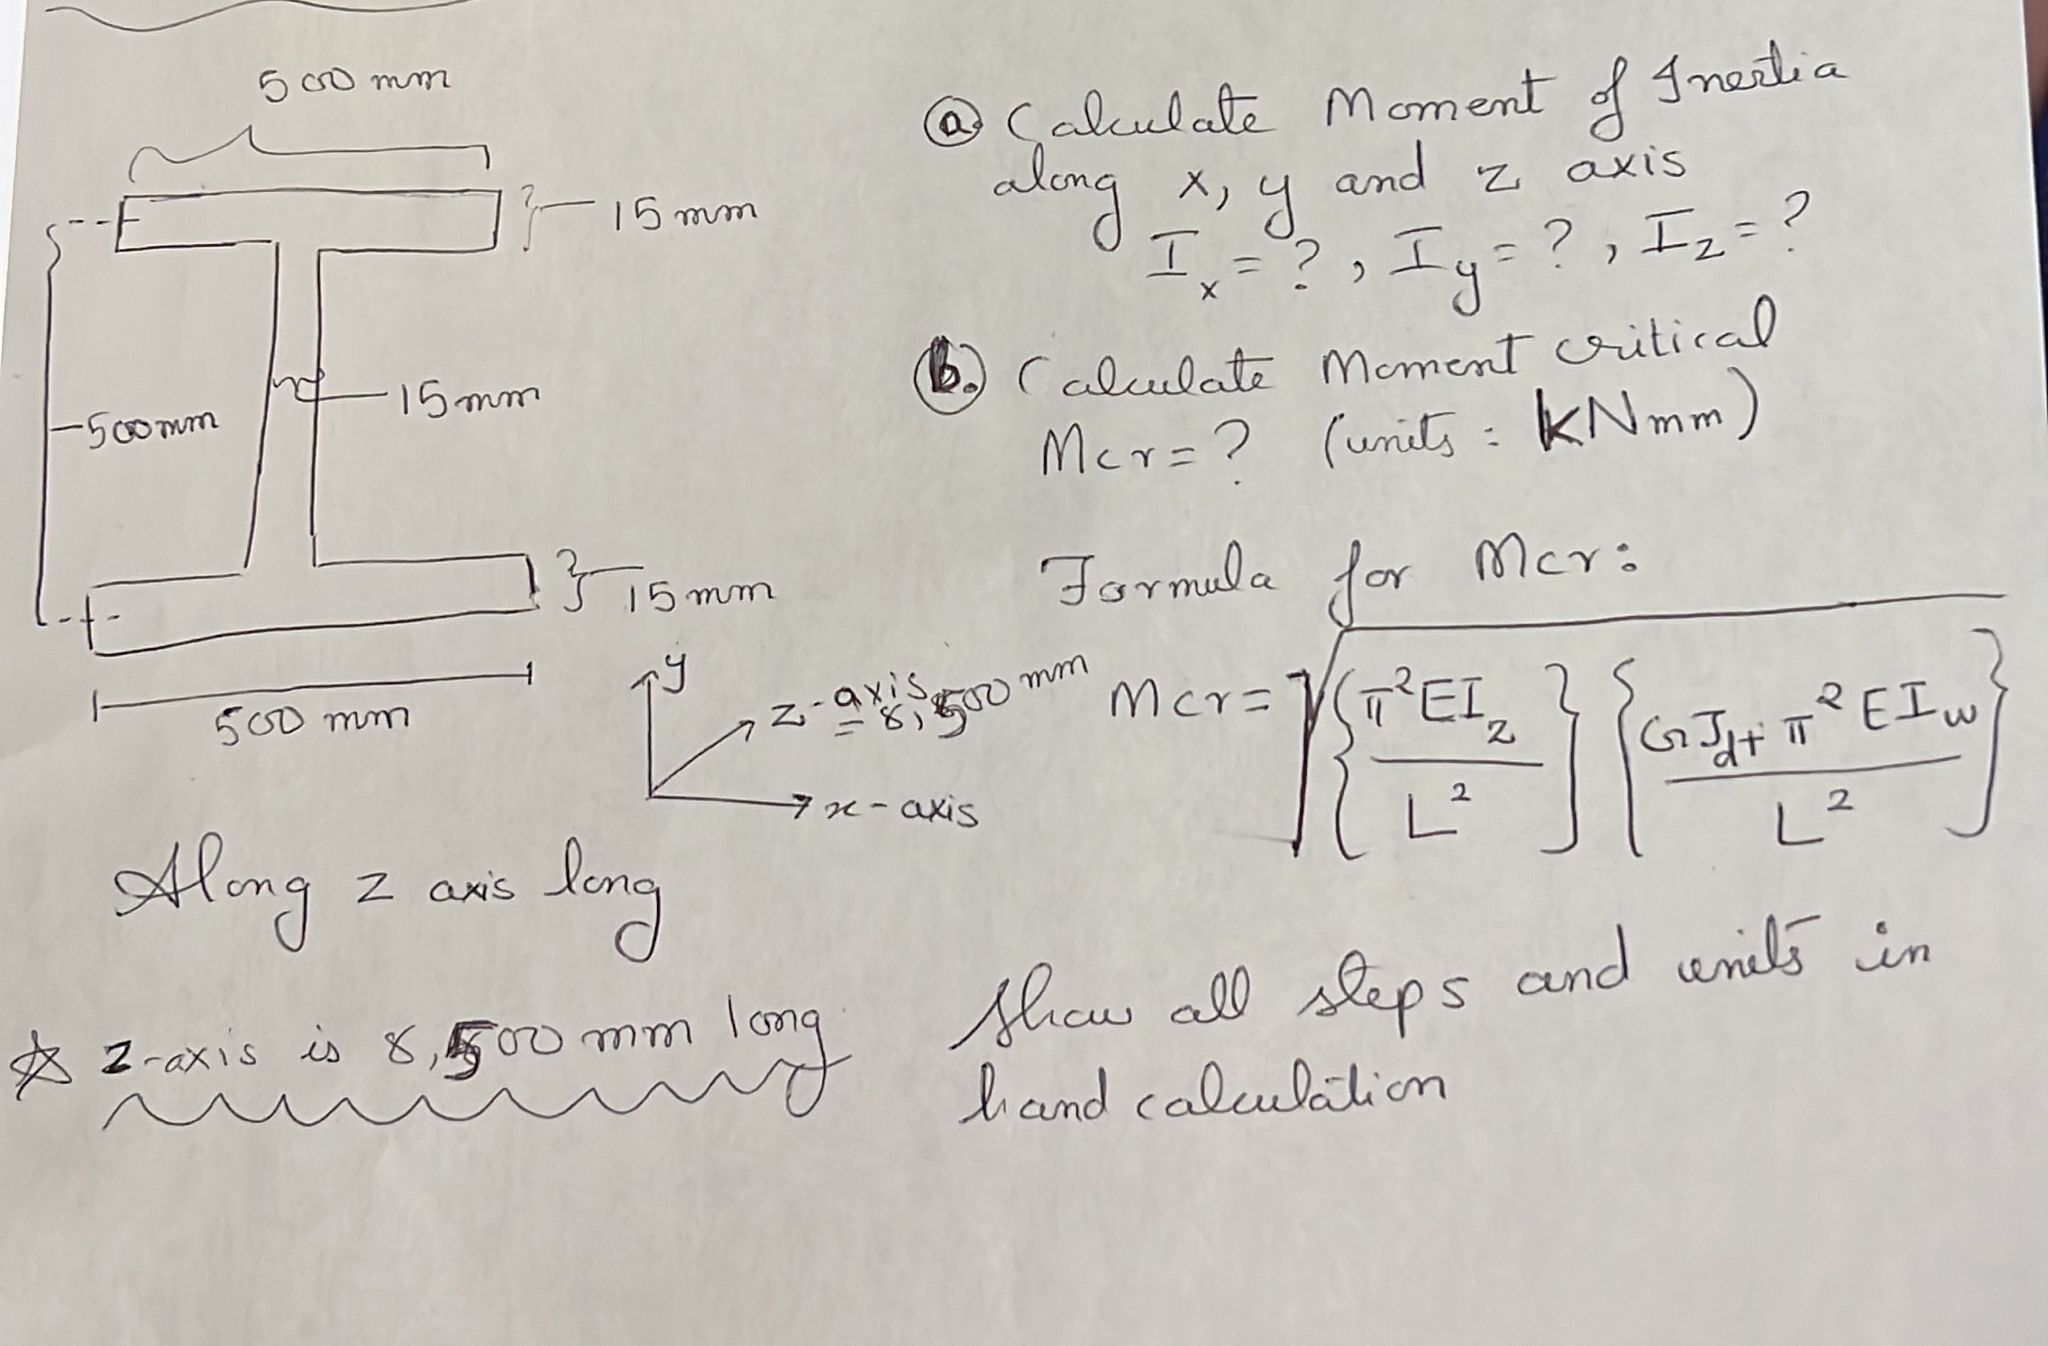 500 mm
15 mm
500mm
15mm
15 mm
500 mm
y
z-axis
= 8,500 mm
x-axis
Along z axis long
☆ z-axis is 8,500 mm long
ⓐ Calculate Moment of Inertia
along x, y and z axis
I_x = ?, I_y = ?, I_z = ?
ⓑ. Calculate Moment critical
Mcr = ? (units : kNmm)
Formula for Mcr:
Mcr = √{π²EI_z / L²} {GJ_d + π²EI_w / L²}
Show all steps and units in
hand calculation